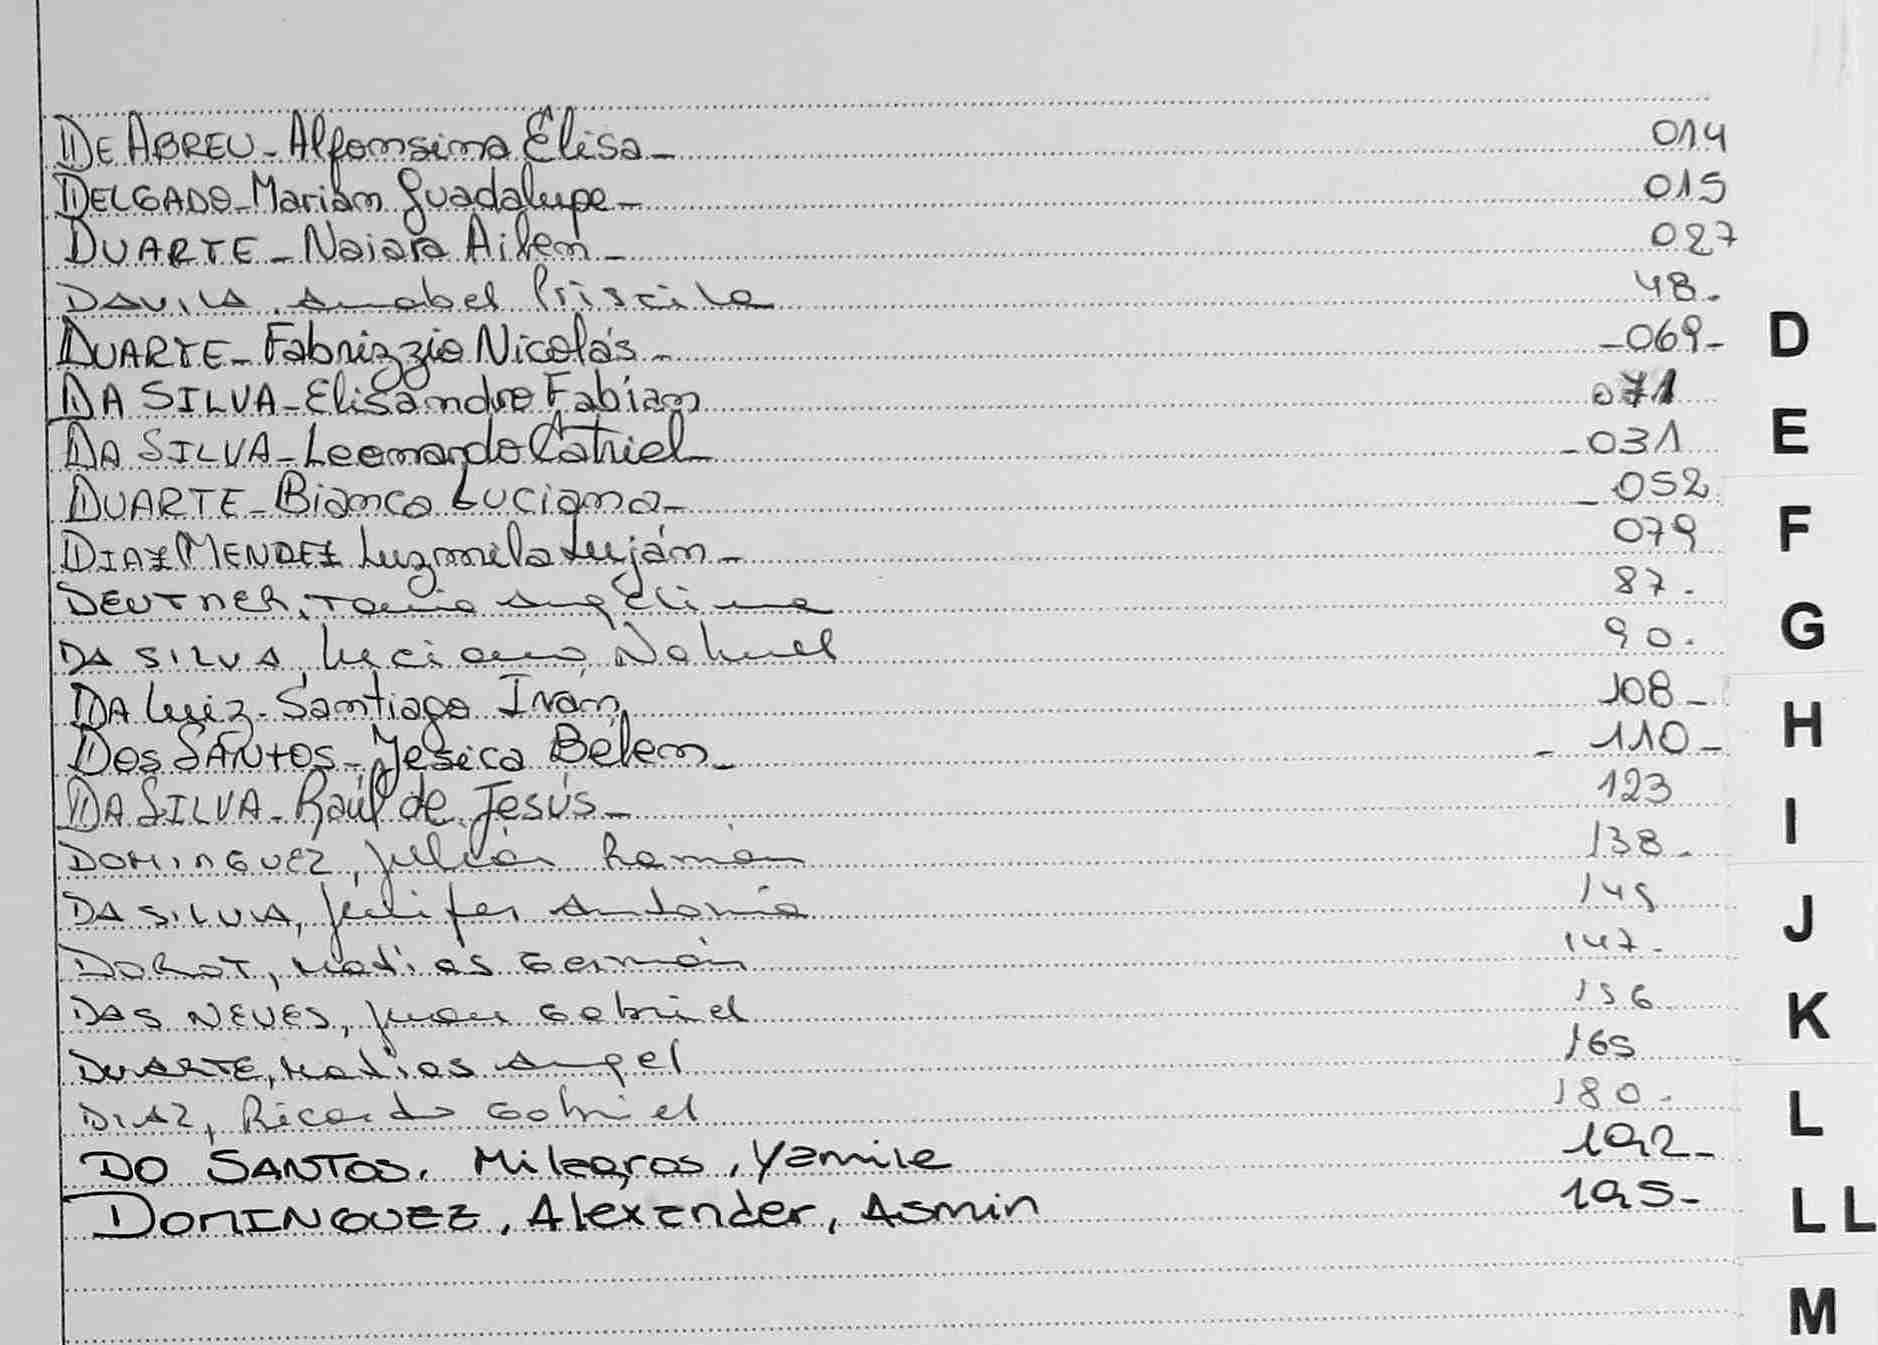 DE ABREU - Alfonsina Elisa - 014
DELGADO - Marian Guadalupe - 015
DUARTE - Naiara Ailen - 027
DAVILA, Anabel Priscila 48.
DUARTE - Fabrizzio Nicolás - -069-
DA SILVA - Elisandro Fabian 071
DA SILVA - Leonardo Catriel - -031
DUARTE - Bianca Luciana - -052
DIAZ MENDEZ Luzmila Luján - 079
DEUTNER, Tania Angelina 87.
DA SILVA, Luciano Nahuel 90.
DA Luiz - Santiago Iván 108-
DOS SANTOS - Yesica Bélen - - 110-
DA SILVA - Raúl de Jesús - 123
DOMINGUEZ, Julián Ramón 138.
DA SILVA, Julifer Antonia 145
DOROT, Matias Germán 147.
DAS NEVES, Juan Gabriel 156
DUARTE, Matias Angel 165
DIAZ, Ricardo Gabriel 180.
DO SANTOS, Milagros, Yamile 192-
DOMINGUEZ, Alexander, Asmin 195-
D
E
F
G
H
I
J
K
L
LL
M